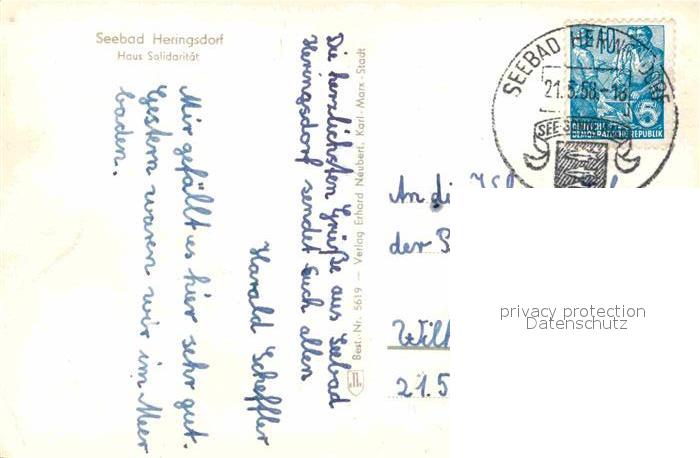 Seebad Heringsdorf
Haus Solidarität
Die herzlichsten Grüße aus Seebad
Heringsdorf sendet Euch allen
Harald Scheffler
Mir gefällt es hier sehr gut.
Gestern waren wir im Meer
baden.
Best.-Nr. 5619 — Verlag Erhard Neubert, Karl-Marx-Stadt
SEEBAD HERINGSDORF
DEUTSCHE
DEMOKRATISCHE REPUBLIK
5
An di
der
Wilh
21.5
privacy protection
Datenschutz